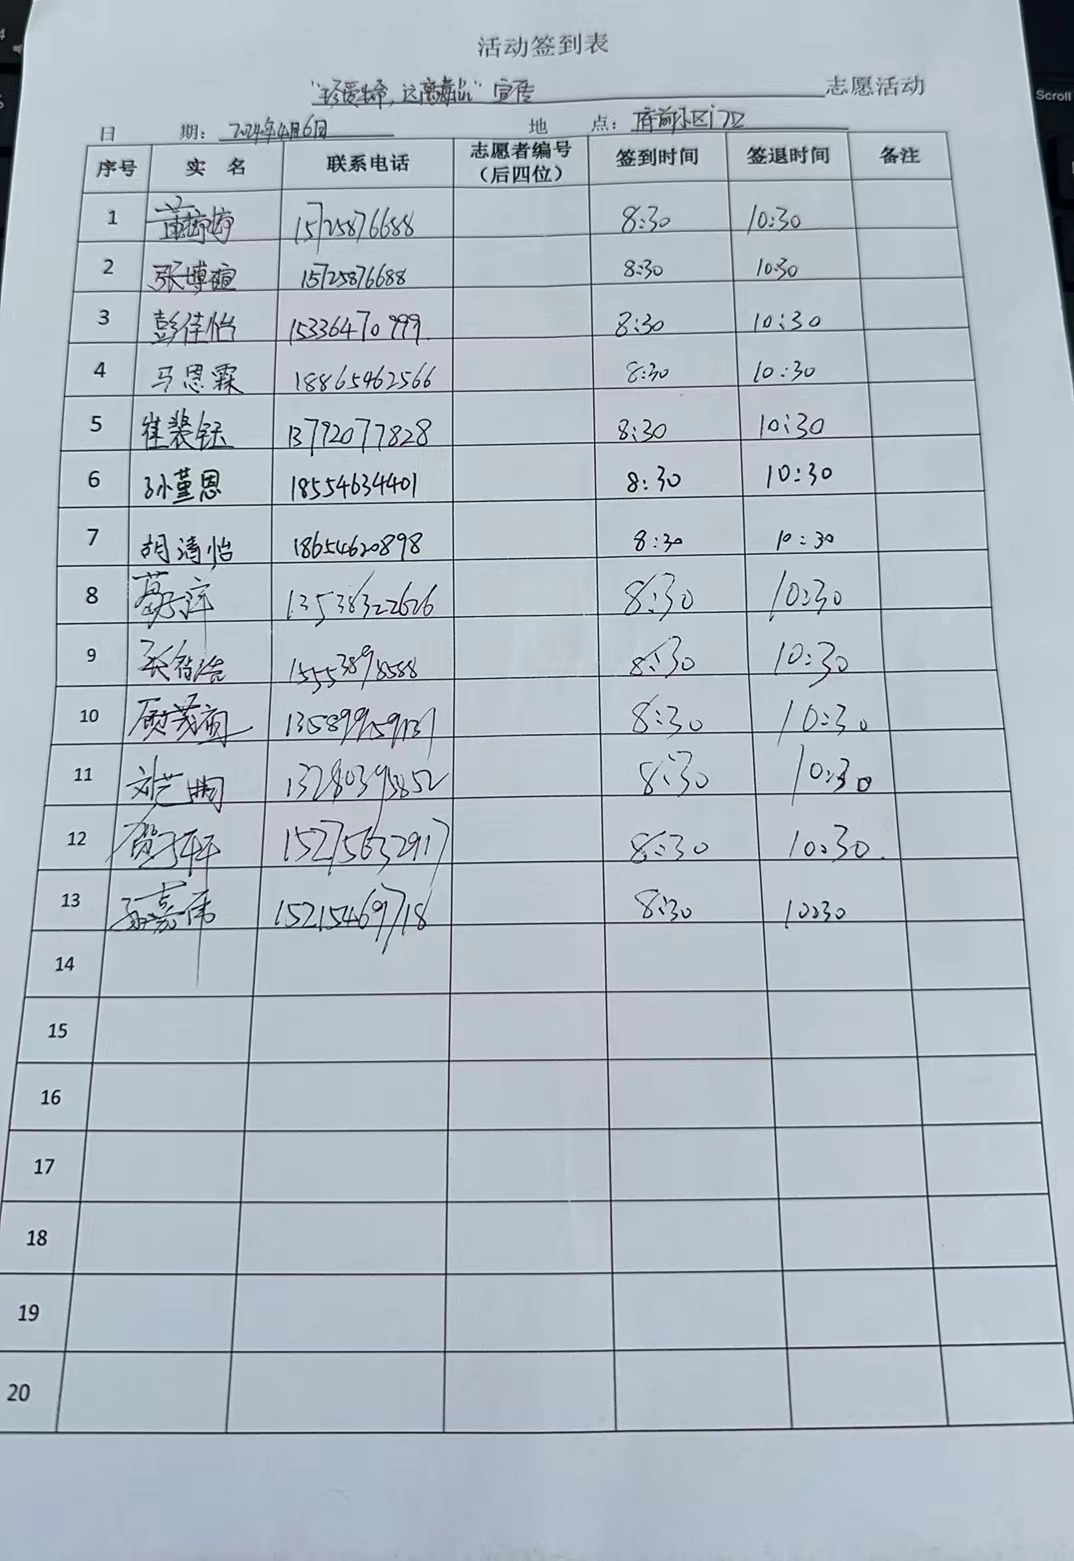 活动签到表
"珍爱生命，远离毒品"宣传 志愿活动
日 期：2024年4月6日 地 点：府前小区门口
序号 实 名 联系电话 志愿者编号（后四位） 签到时间 签退时间 备注
1 15725876688 8:30 10:30
2 张博暄 15725876688 8:30 10:30
3 彭佳怡 15336470999 8:30 10:30
4 马恩霖 18865462566 8:30 10:30
5 崔裴钰 13792077828 8:30 10:30
6 孙堇恩 18554634401 8:30 10:30
7 胡清怡 18654620898 8:30 10:30
8 葛子萍 13538322626 8:30 10:30
9 15553898588 8:30 10:30
10 13589959137 8:30 10:30
11 刘艺明 13280393852 8:30 10:30
12 贺子轩 15275632917 8:30 10:30
13 孙嘉伟 15215469718 8:30 10:30
14
15
16
17
18
19
20
Scroll